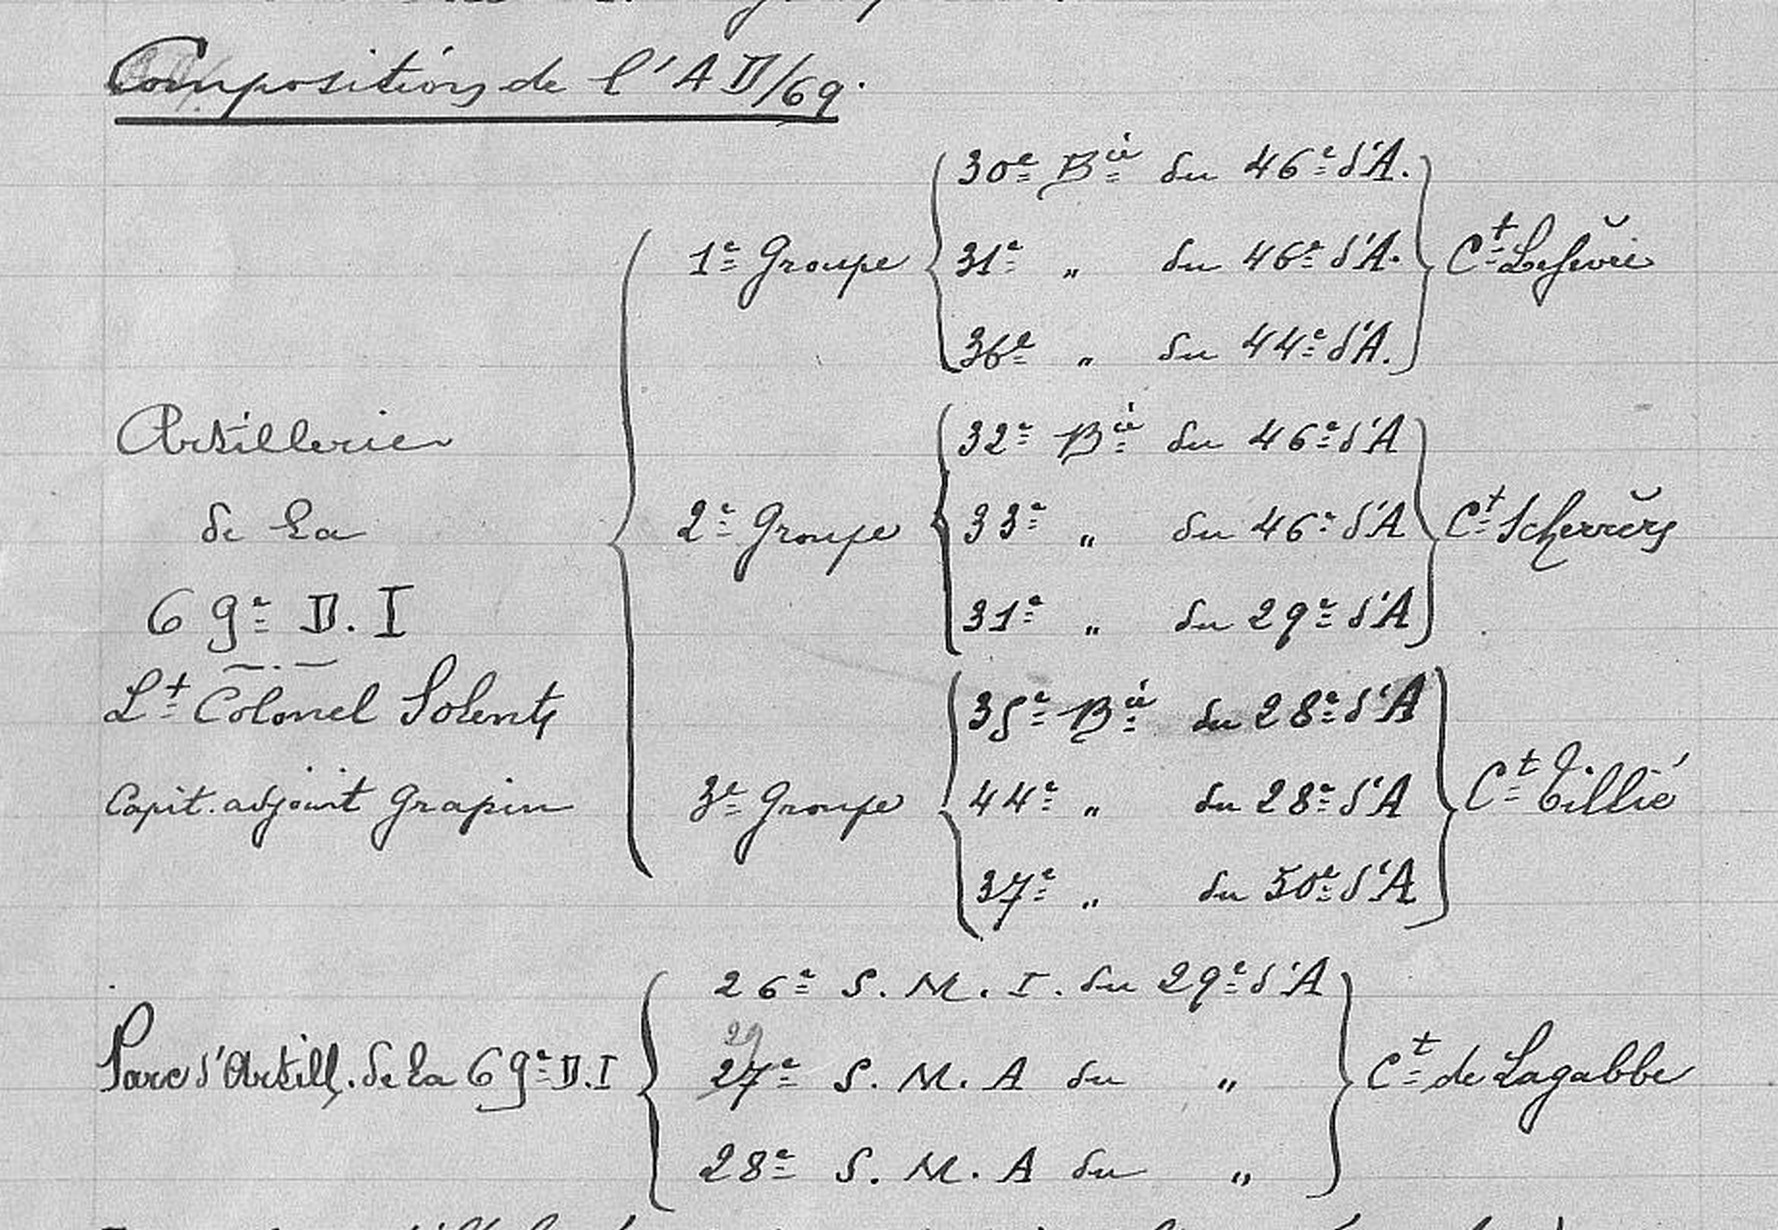 Composition de l'A D/69.
30e Bie du 46e d'A.
1e Groupe 31e " du 46e d'A. Ct Lefèvre
36e " du 44e d'A.
Artillerie
32e Bie du 46e d'A
de la
2e Groupe 33e " du 46e d'A Ct Scherrers
69e D.I
31e " du 29e d'A
Lt Colonel Solente
35e Bie du 28e d'A
Capit. adjoint Grapin
3e Groupe 44e " du 28e d'A Ct Tillié
37e " du 30e d'A
26e S.M.I. du 29e d'A
29
Parc d'Artill. de la 69e D.I 27e S.M.A du " Ct de Lagabbe
28e S.M.A du "